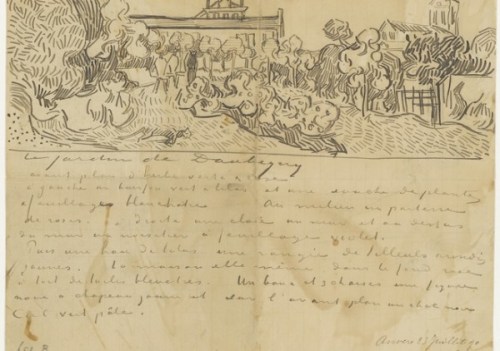 Le jardin de Daubigny
avant plan d'herbe verte et rose
à gauche un buisson vert et lilas et une souche de plantes
à feuillages blanchâtres Au milieu un parterre
de roses à droite une claie un mur et au dessus
du mur un noisetier à feuillage violet.
Puis une haie de lilas une rangée de tilleuls arrondis
jaunes. La maison elle même dans le fond rose
à toit de tuiles bleuâtres Un banc et 3 chaises une figure
noire à chapeau jaune et sur l'avant plan un chat noir
Ciel vert pâle.
Auvers Juillet 90